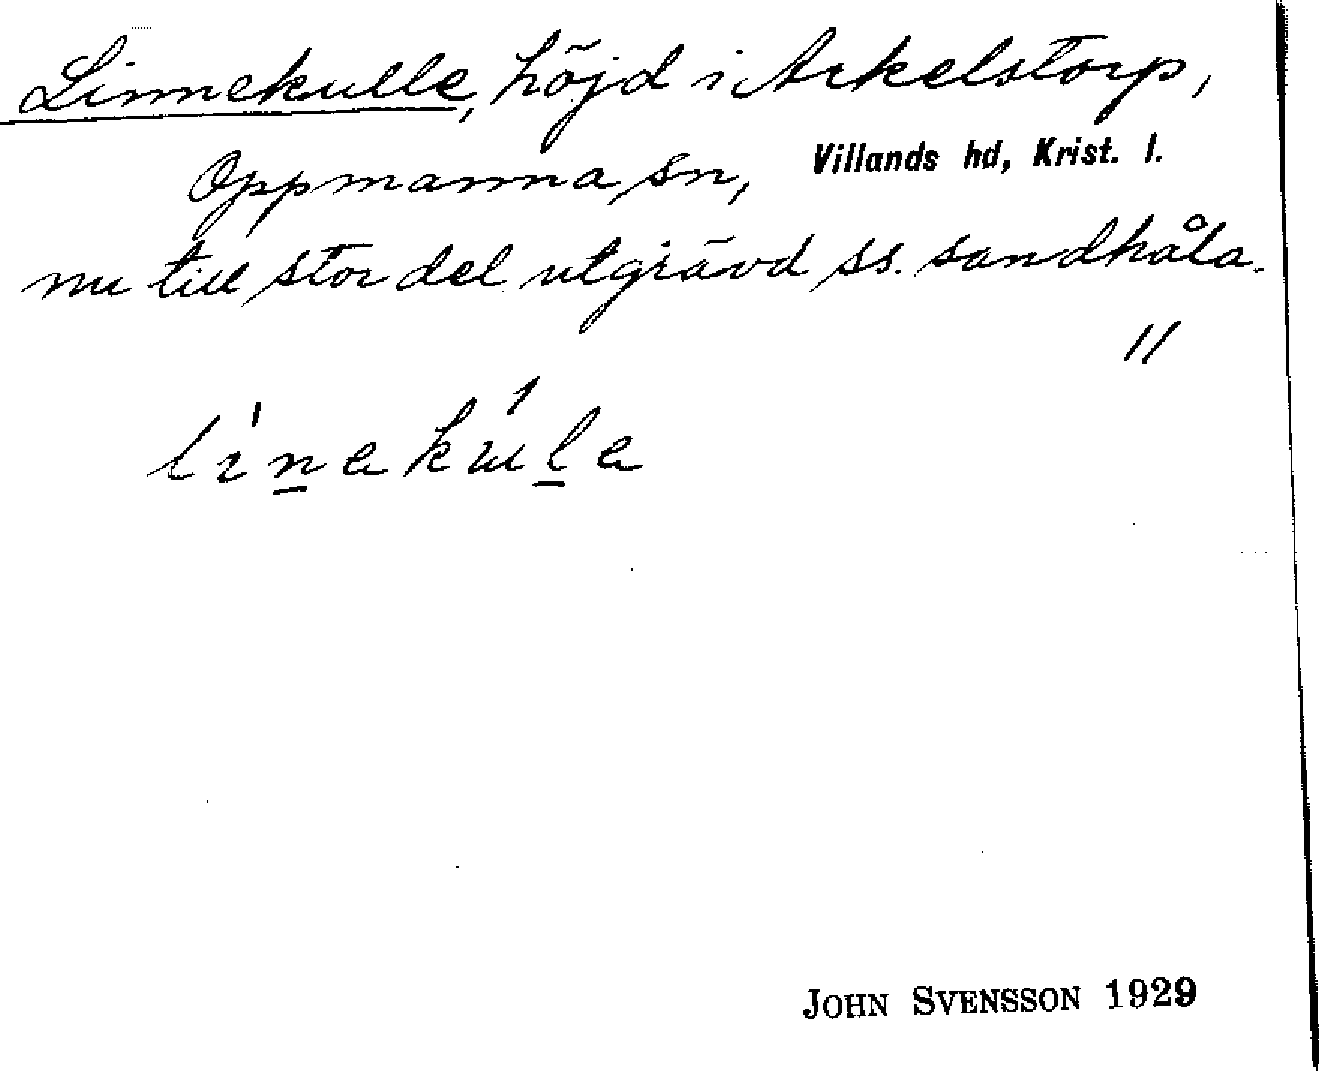 Linnekulle, höjd i Arkelstorp,
Oppmanna sn, Villands hd, Krist. l.
nu till stor del utgrävd ss. sandhåla.
//
li'nəkúlə
JOHN SVENSSON 1929